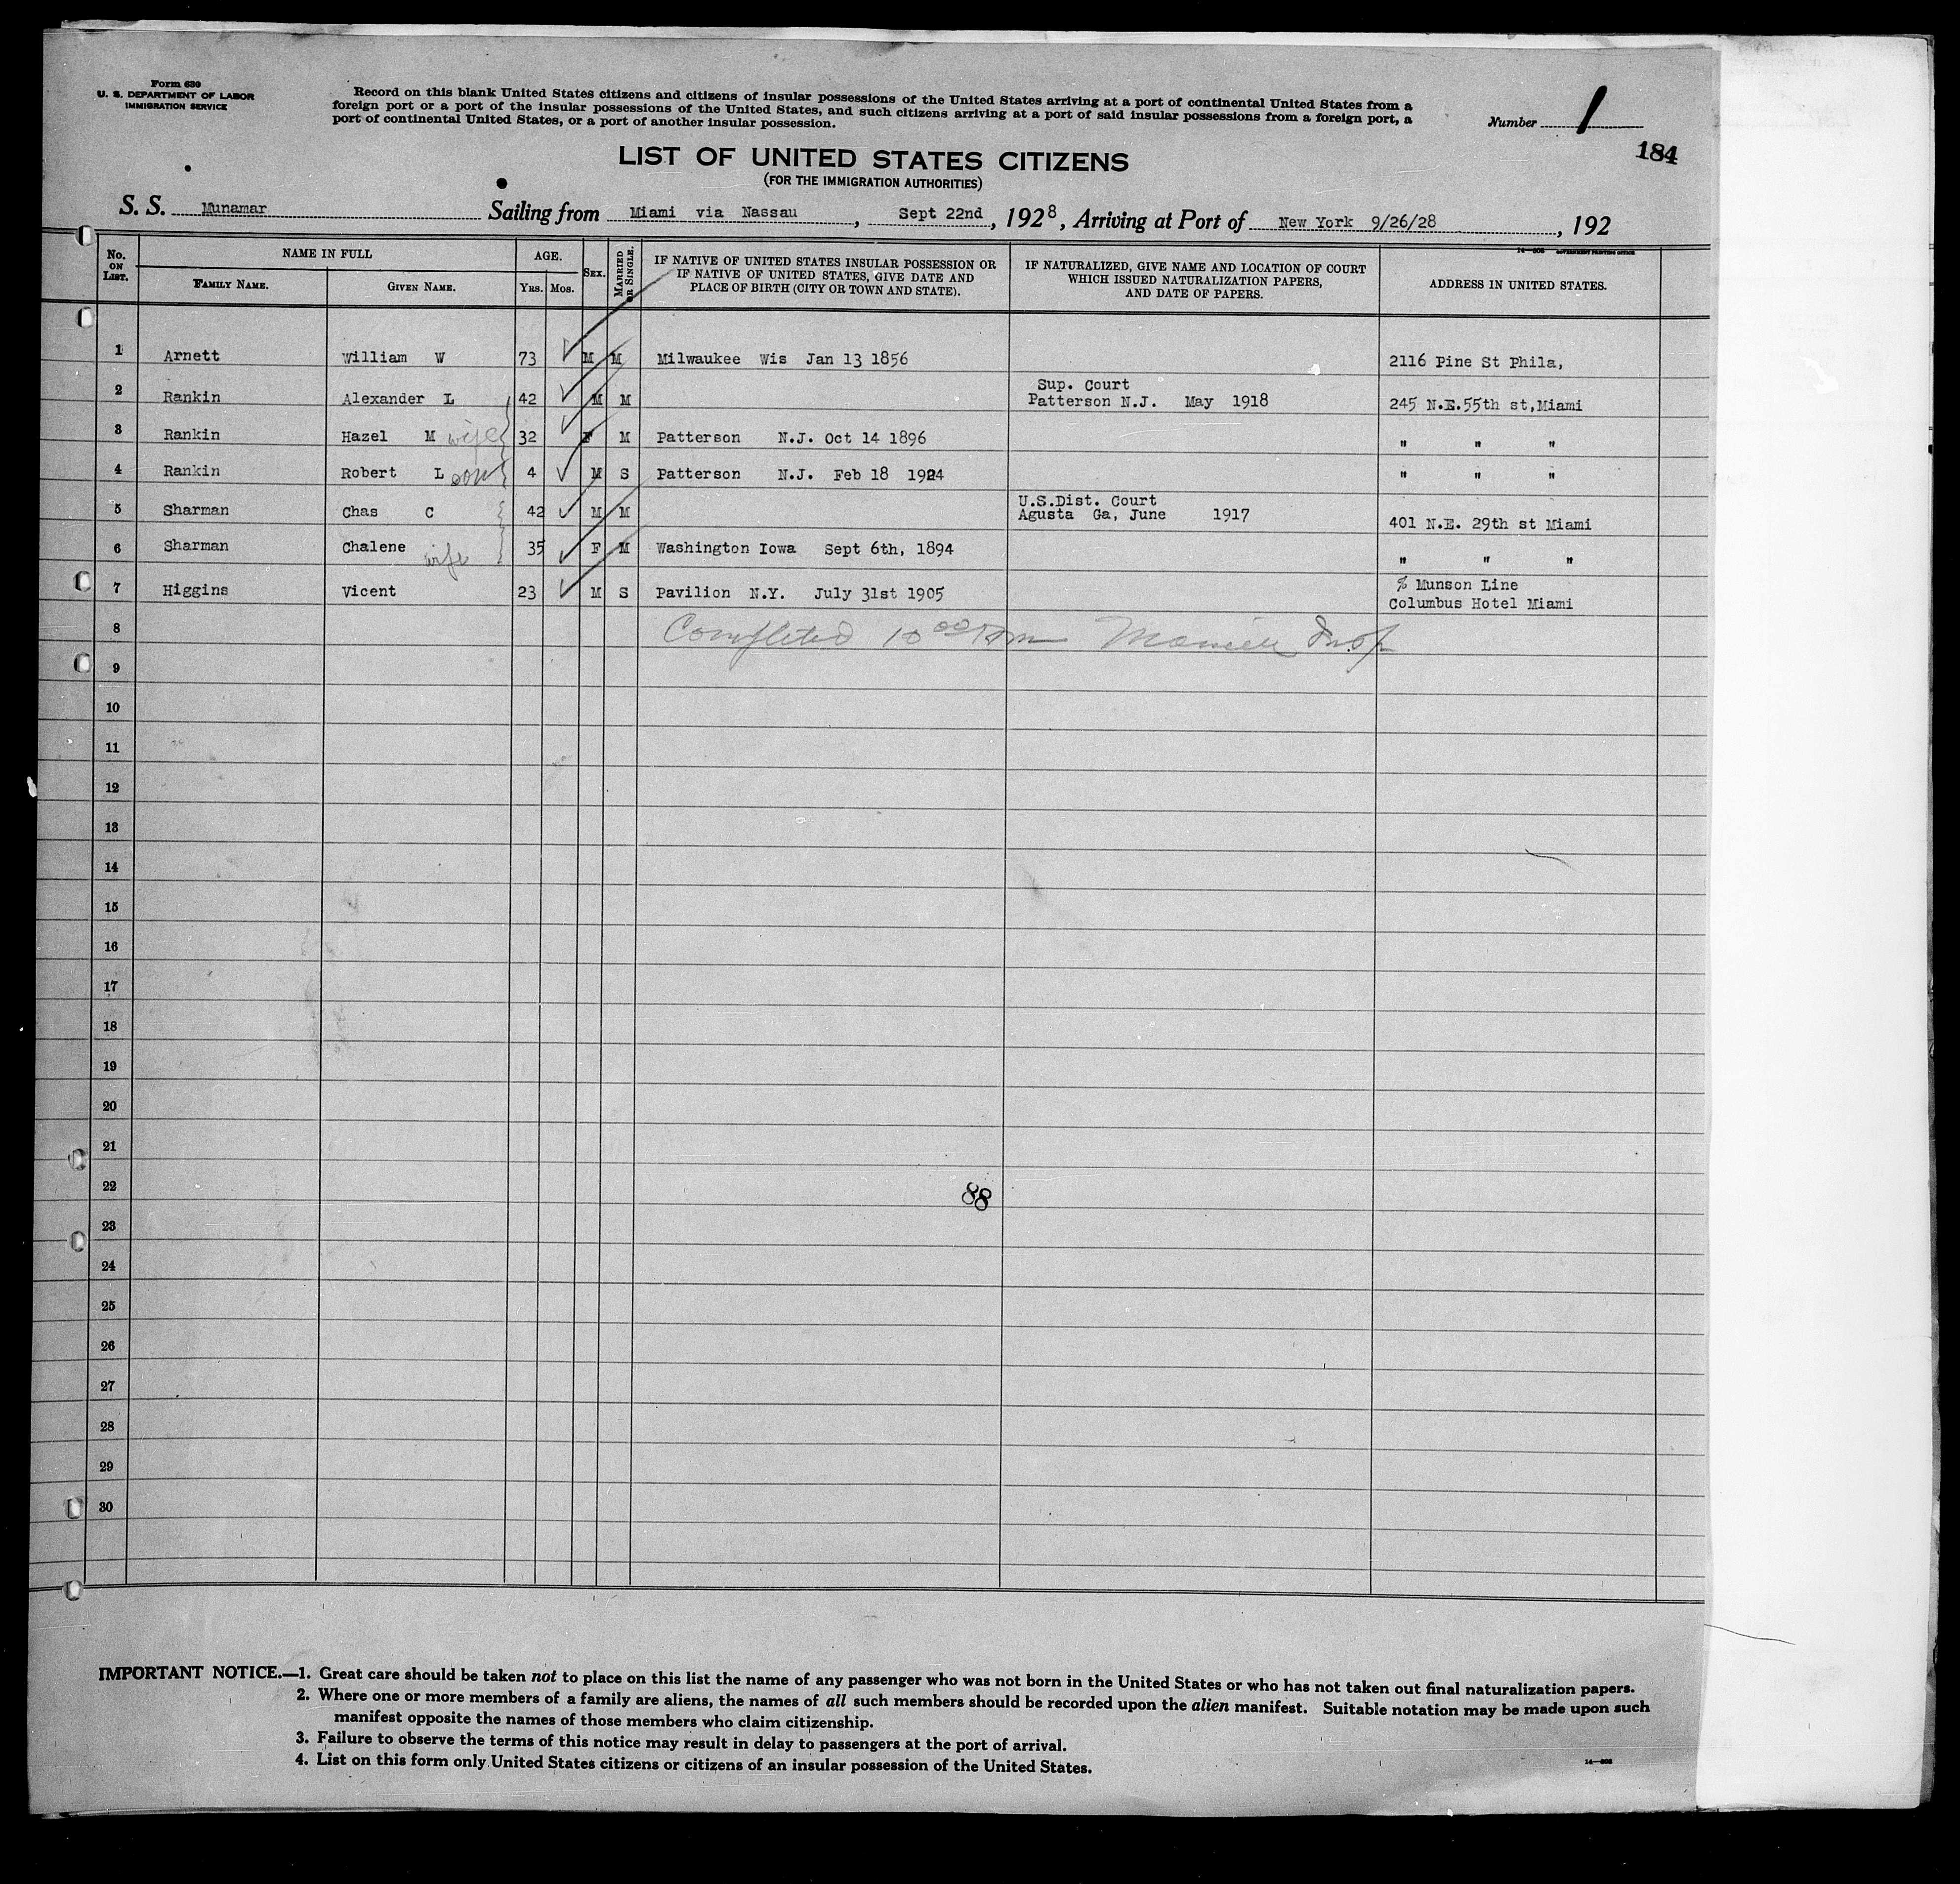 Form 630
U. S. DEPARTMENT OF LABOR
IMMIGRATION SERVICE
Record on this blank United States citizens and citizens of insular possessions of the United States arriving at a port of continental United States from a
foreign port or a port of the insular possessions of the United States, and such citizens arriving at a port of said insular possessions from a foreign port, a
port of continental United States, or a port of another insular possession.
Number 1
184
LIST OF UNITED STATES CITIZENS
(FOR THE IMMIGRATION AUTHORITIES)
S. S. Munamar Sailing from Miami via Nassau, Sept 22nd, 1928, Arriving at Port of New York 9/26/28, 192
GOVERNMENT PRINTING OFFICE
No. ON LIST.
NAME IN FULL
FAMILY NAME. GIVEN NAME.
AGE.
YRS. MOS.
SEX.
MARRIED OR SINGLE.
IF NATIVE OF UNITED STATES INSULAR POSSESSION OR
IF NATIVE OF UNITED STATES, GIVE DATE AND
PLACE OF BIRTH (CITY OR TOWN AND STATE).
IF NATURALIZED, GIVE NAME AND LOCATION OF COURT
WHICH ISSUED NATURALIZATION PAPERS,
AND DATE OF PAPERS.
ADDRESS IN UNITED STATES.
1 Arnett William W 73 M M Milwaukee Wis Jan 13 1856 2116 Pine St Phila,
2 Rankin Alexander L 42 M M Sup. Court
Patterson N.J. May 1918 245 N.E.55th st,Miami
3 Rankin Hazel M wife 32 F M Patterson N.J. Oct 14 1896 " " "
4 Rankin Robert L son 4 M S Patterson N.J. Feb 18 1924 " " "
5 Sharman Chas C 42 M M U.S.Dist. Court
Agusta Ga, June 1917 401 N.E. 29th st Miami
6 Sharman Chalene wife 35 F M Washington Iowa Sept 6th, 1894 " " "
7 Higgins Vicent 23 M S Pavilion N.Y. July 31st 1905 % Munson Line
Columbus Hotel Miami
8 Completed 10 00 Insp
9
10
11
12
13
14
15
16
17
18
19
20
21
22 88
23
24
25
26
27
28
29
30
IMPORTANT NOTICE.—1. Great care should be taken not to place on this list the name of any passenger who was not born in the United States or who has not taken out final naturalization papers.
2. Where one or more members of a family are aliens, the names of all such members should be recorded upon the alien manifest. Suitable notation may be made upon such
manifest opposite the names of those members who claim citizenship.
3. Failure to observe the terms of this notice may result in delay to passengers at the port of arrival.
4. List on this form only United States citizens or citizens of an insular possession of the United States.